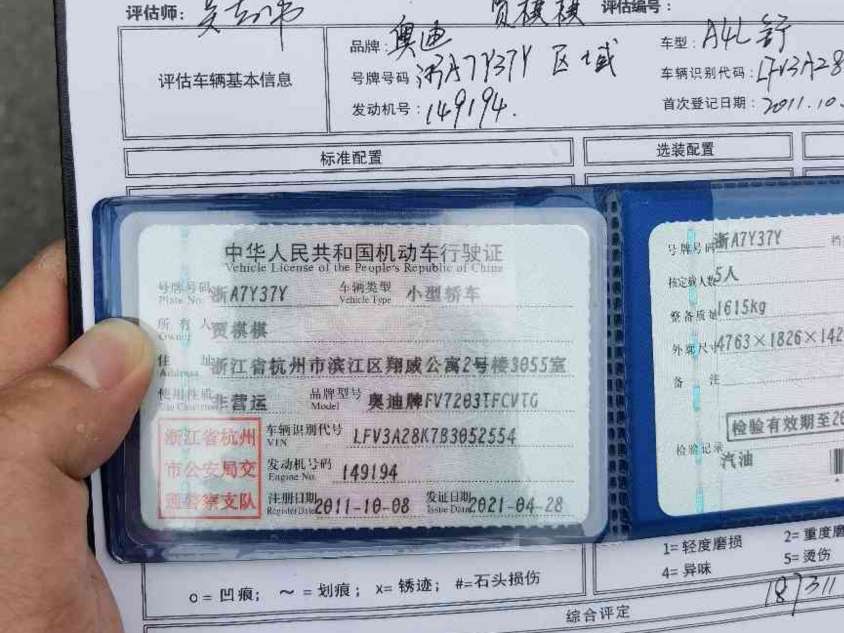 评估师： 评估编号：
评估车辆基本信息
品牌：奥迪 车型：A4L 舒
号牌号码：浙A7Y37Y 区域 车辆识别代码：LFV3A28
发动机号：149194. 首次登记日期：2011.10.
标准配置 选装配置
中华人民共和国机动车行驶证
Vehicle License of the People's Republic of China
号牌号码 浙A7Y37Y 车辆类型 小型轿车
Plate No. Vehicle Type
所有人 贾棋棋
Owner
住 址 浙江省杭州市滨江区翔威公寓2号楼3055室
Address
使用性质 非营运 品牌型号 奥迪牌FV7203TFCVTG
Use Character Model
浙江省杭州市公安局交通警察支队
车辆识别代号 LFV3A28K7B3052554
VIN
发动机号码 149194
Engine No.
注册日期 2011-10-08 发证日期 2021-04-28
Register Date Issue Date
号牌号码 浙A7Y37Y 档
核定载人数 5人
整备质量 1615kg
外廓尺寸 4763×1826×142
备 注
检验有效期至20
检验记录
汽油
1=轻度磨损 2=重度磨
4=异味 5=烫伤
o=凹痕； ～=划痕； x=锈迹； #=石头损伤
综合评定 187311